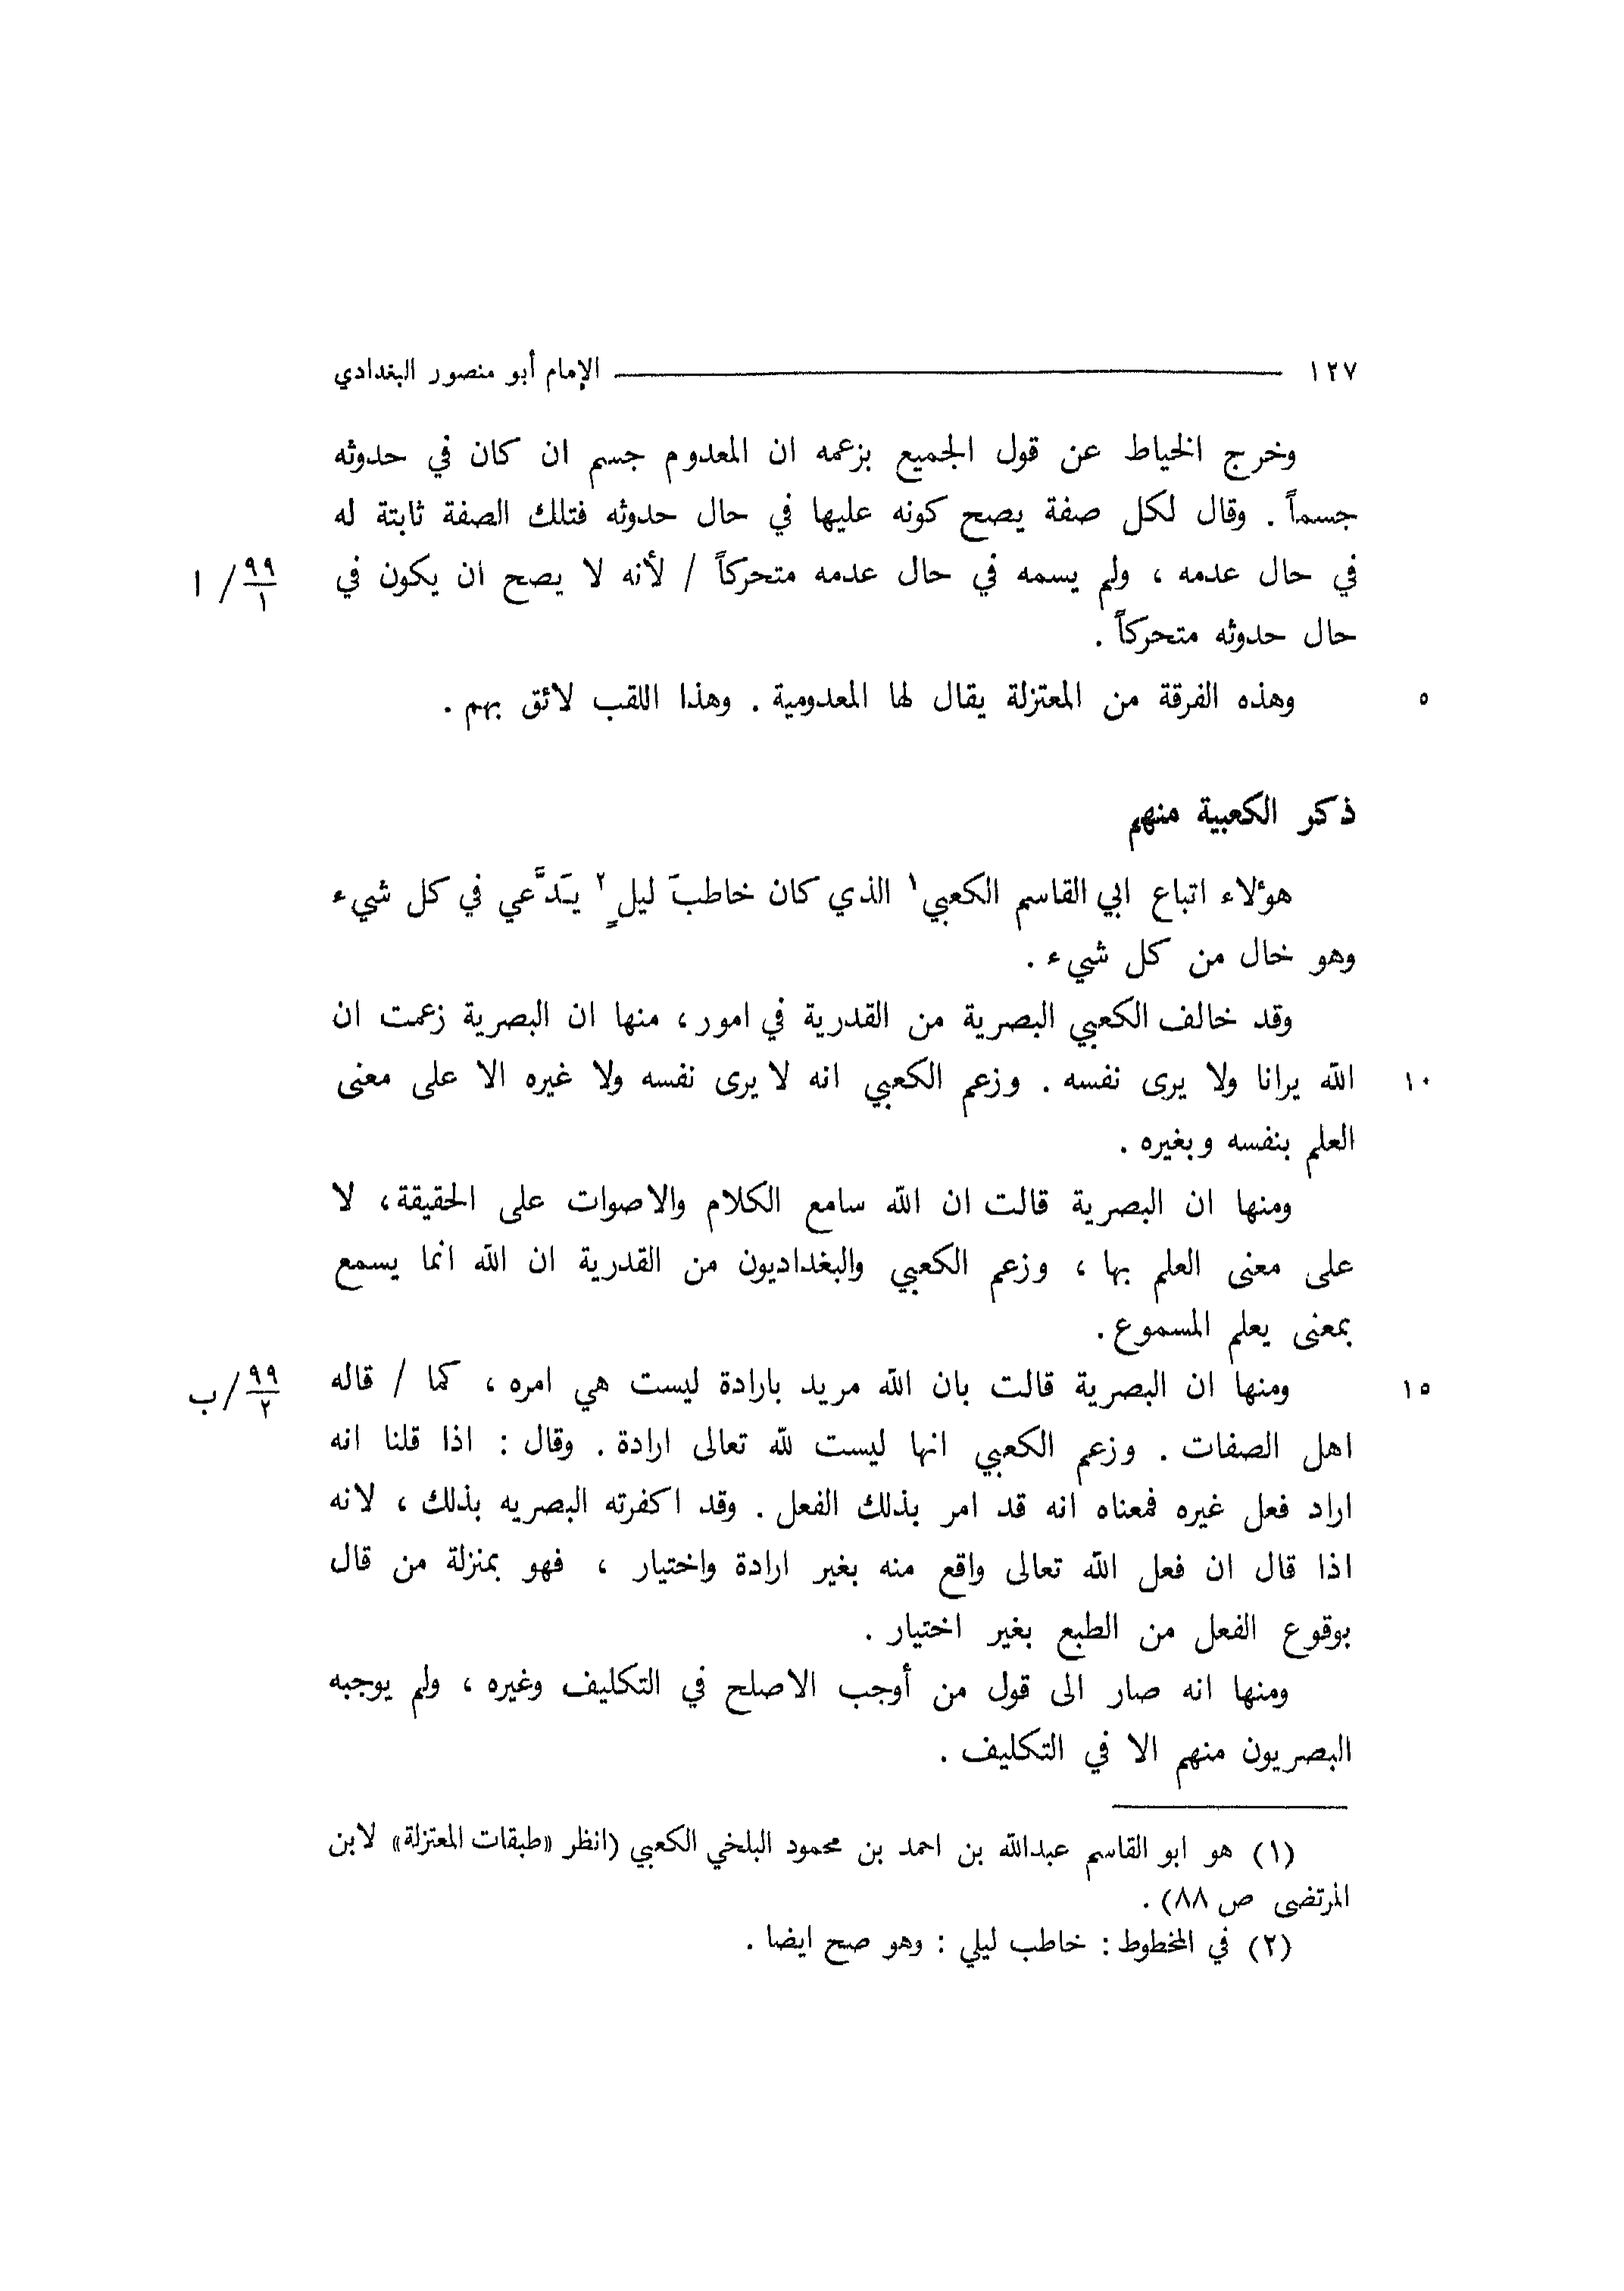 ١٢٧ الإمام أبو منصور البغدادي
وخرج الخياط عن قول الجميع بزعمه ان المعدوم جسم ان كان في حدوثه
جسماً . وقال لكل صفة يصح كونه عليها في حال حدوثه فتلك الصفة ثابتة له
في حال عدمه ، ولم يسمه في حال عدمه متحركاً / لأنه لا يصح ان يكون في ٩٩/١ / ا
حال حدوثه متحركاً .
٥ وهذه الفرقة من المعتزلة يقال لها المعدومية . وهذا اللقب لائق بهم .
ذكر الكعبية منهم
هؤلاء اتباع ابي القاسم الكعبي١ الذي كان خاطبَ ليلٍ٢ يَدَّعي في كل شيء
وهو خال من كل شيء .
وقد خالف الكعبي البصرية من القدرية في امور ، منها ان البصرية زعمت ان
١٠ الله يرانا ولا يرى نفسه . وزعم الكعبي انه لا يرى نفسه ولا غيره الا على معنى
العلم بنفسه وبغيره .
ومنها ان البصرية قالت ان الله سامع الكلام والاصوات على الحقيقة ، لا
على معنى العلم بها ، وزعم الكعبي والبغداديون من القدرية ان الله انما يسمع
بمعنى يعلم المسموع .
١٥ ومنها ان البصرية قالت بان الله مريد بارادة ليست هي امره ، كما / قاله ٩٩/٢ / ب
اهل الصفات . وزعم الكعبي انها ليست لله تعالى ارادة . وقال : اذا قلنا انه
اراد فعل غيره فمعناه انه قد امر بذلك الفعل . وقد اكفرته البصريه بذلك ، لانه
اذا قال ان فعل الله تعالى واقع منه بغير ارادة واختيار ، فهو بمنزلة من قال
بوقوع الفعل من الطبع بغير اختيار .
ومنها انه صار الى قول من أوجب الاصلح في التكليف وغيره ، ولم يوجبه
البصريون منهم الا في التكليف .
(١) هو ابو القاسم عبدالله بن احمد بن محمود البلخي الكعبي (انظر «طبقات المعتزلة» لابن
المرتضى ص ٨٨) .
(٢) في المخطوط : خاطب ليلي : وهو صح ايضا .